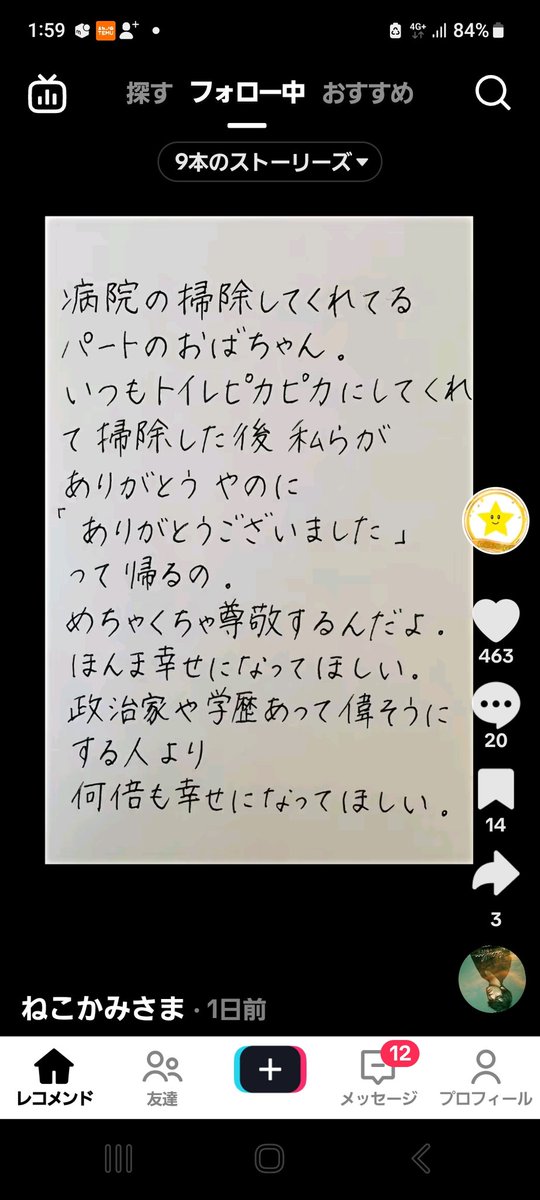 1:59
4G+
84%
探す フォロー中 おすすめ
9本のストーリーズ
病院の掃除してくれてる
パートのおばちゃん。
いつもトイレピカピカにしてくれ
て掃除した後 私らが
ありがとう やのに
「ありがとうございました」
って帰るの。
めちゃくちゃ尊敬するんだよ.
ほんま幸せになってほしい。
政治家や学歴あって偉そうに
する人より
何倍も幸せになってほしい。
463
20
14
3
ねこかみさま · 1日前
12
レコメンド 友達 メッセージ プロフィール